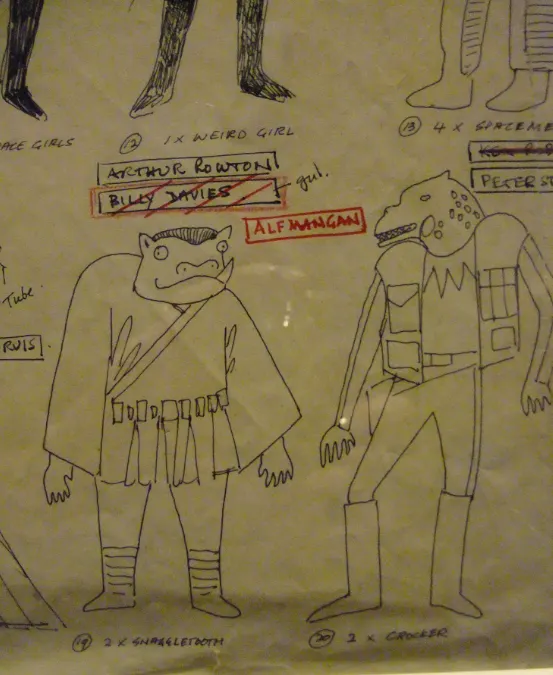 ACE GIRLS
12 1 X WEIRD GIRL
13 4 X SPACEME
ARTHUR ROWTON
BILLY DAVIES
out.
ALF MANGAN
PETER ST
Tube.
RVIS.
19 2 X SNAGGLETOOTH
20 2 X CROCKER